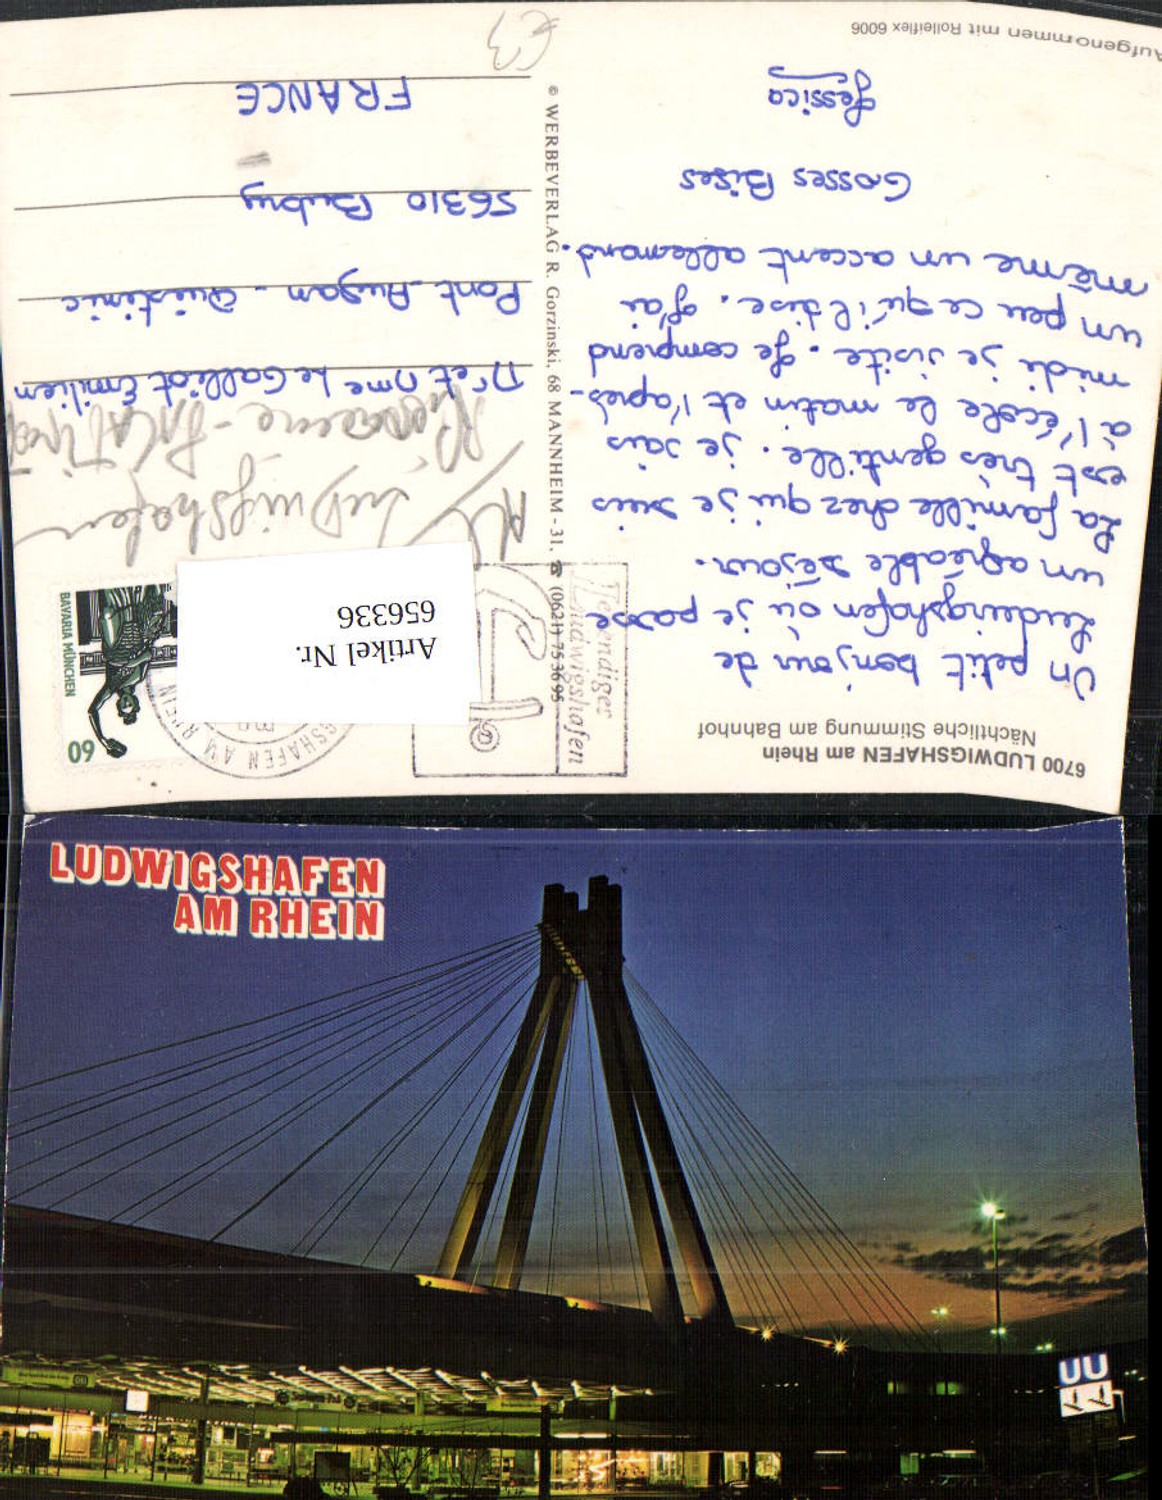 6700 LUDWIGSHAFEN am Rhein
Nächtliche Stimmung am Bahnhof
Un petit bonjour de
Ludwigshafen où je passe
un agréable séjour.
La famille chez qui je suis
est très gentille. je vais
à l'école le matin et l'après-
midi je visite. Je comprend
un peu ce qu'il dise. J'ai
même un accent allemand.
Grosses Bises
Jessica
Aufgenommen mit Rolleiflex 6006
© WERBEVERLAG R. Gorzinski, 68 MANNHEIM - 31, ☎ (0621) 75 36 95
Lebendiges
Ludwigshafen
GSHAFEN AM RHEIN
60
BAVARIA MÜNCHEN
Artikel Nr.
656336
Ludwigshafen
Mr et Mme Le Galliot Emilien
Pont-Augan - Quistinic
56310 Bubry
FRANCE
€3
LUDWIGSHAFEN
AM RHEIN
UU